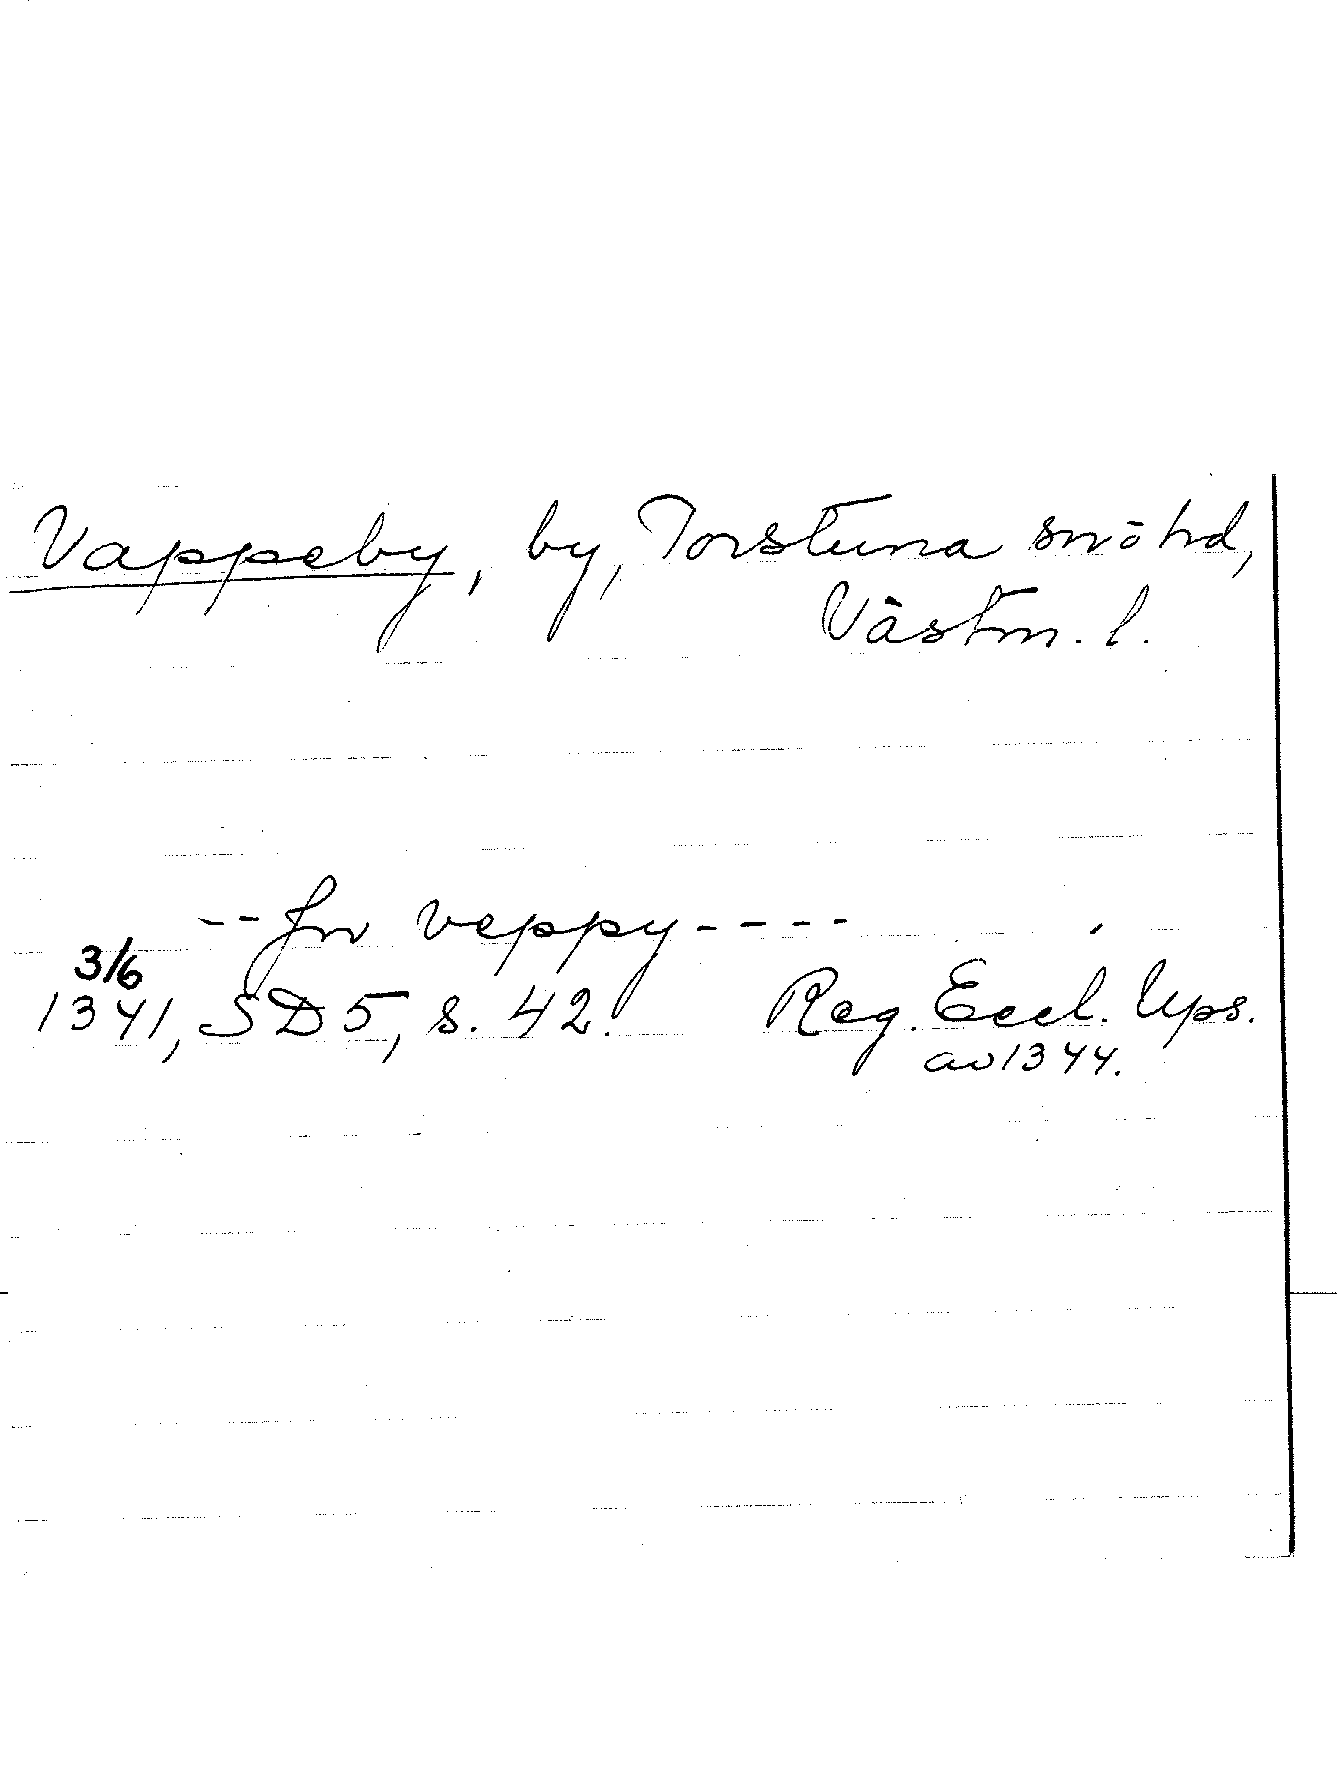 Vappeby, by, Torstuna sn o hd,
Västm. l.
--jn veppy----
3/6
1341, SD 5, s. 42. Reg. Eccl. Ups.
av 1344.